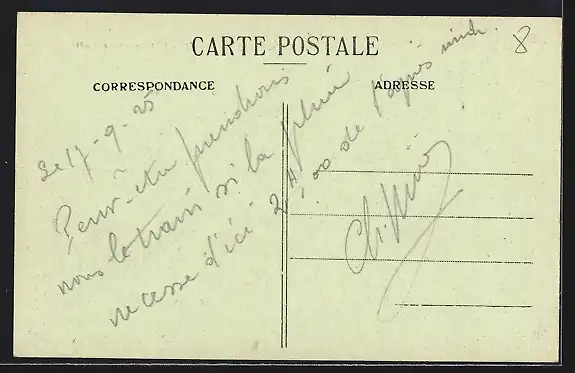 CARTE POSTALE
8
CORRESPONDANCE
ADRESSE
Le 17-9-25
Peut-être prendrons
nous le train si la pluie
ne cesse d'ici 2 H, 00 de l'après midi.
Ch.